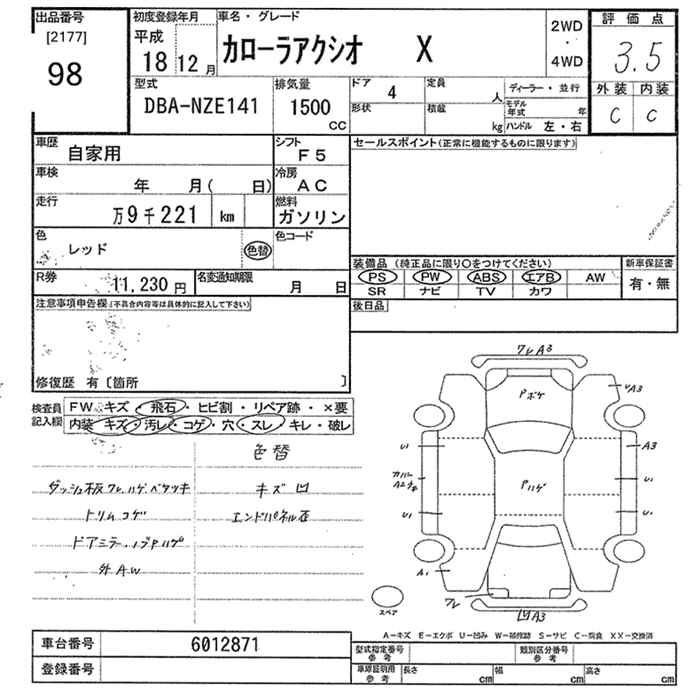 出品番号 初度登録年月 車名・グレード 2WD 評価点
[2177] 平成 カローラアクシオ X ・ 3.5
98 18 12月 4WD
型式 排気量 ドア 定員 ディーラー・並行 外装 内装
DBA-NZE141 1500 4 人 モデル年式 年 C C
CC 形状 積載 kg ハンドル 左・右
車歴 自家用 シフト F5 セールスポイント(正常に機能するものに限ります)
車検 年 月( 日) 冷房 AC
走行 万9千221 km 燃料 ガソリン
色 レッド 色替 色コード
装備品 (純正品に限り○をつけてください) 新車保証書
R券 11,230円 名変通知期限 月 日 PS PW ABS エアB AW 有・無
SR ナビ TV カワ
注意事項申告欄(不具合内容等は具体的に記入して下さい) 後日品
修復歴 有〔箇所 〕
検査員記入欄 FW キズ・飛石・ヒビ割・リペア跡・×要
内装 キズ・汚レ・コゲ・穴・スレ・キレ・破レ
色替
ダッシュ板ワレ.ハゲ.ベタツキ キズ凹
トリムコゲ エンドパネル歪
ドアミラー.ノブPハゲ
外AW
ワレA3
Pボケ
A3
U1 A3
カバー
Pハゲ U1
U1 U1
A1
ワレ
A3
スペア
A−キズ E−エクボ U−凹み W−補修跡 S−サビ C−腐食 XX−交換済
車台番号 6012871 型式指定番号参考 類別区分番号参考
登録番号 車庫証明用参考 長さ cm 幅 cm 高さ cm